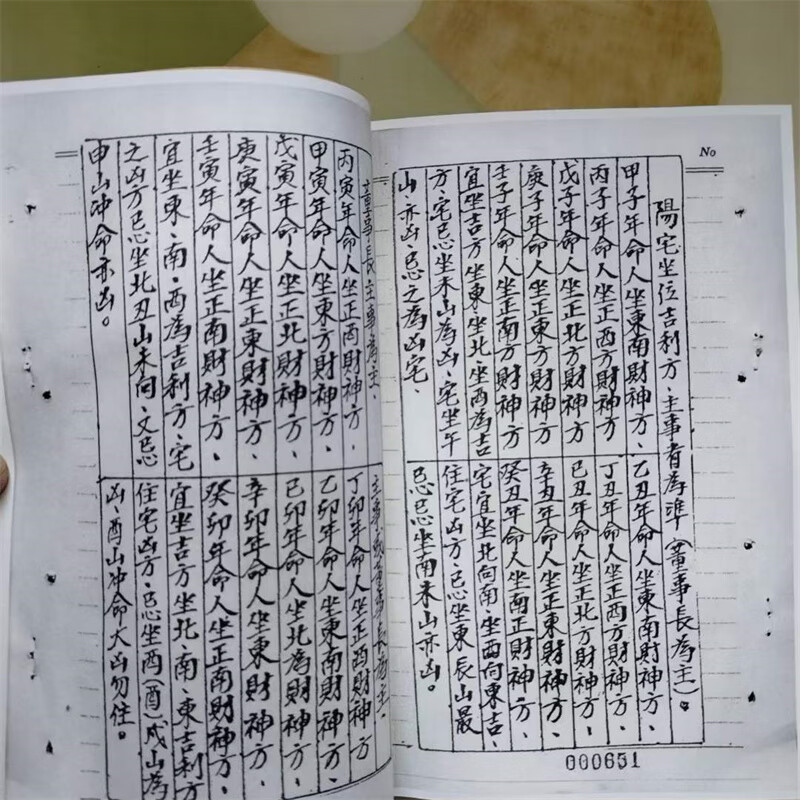 No
陽宅坐位吉利方、主事者為準（董事長為主）。
甲子年命人坐東南財神方、
丙子年命人坐正西方財神方
戊子年命人坐正北方財神方
庚子年命人坐正東方財神方
壬子年命人坐正南方財神方
宜坐吉方坐東、坐北坐西為吉
方、宅忌坐未山為凶、宅坐午
山、亦凶、忌之為凶宅、
乙丑年命人坐東南財神方、
丁丑年命人坐正西方財神方、
己丑年命人坐正北方財神方、
辛丑年命人坐正東財神方、
癸丑年命人坐南正財神方、
宅宜坐北向南、坐西向東吉、
住宅凶方、忌坐東辰山最
忌忌坐南未山亦凶。
000651
董事長主事為主、
丙寅年命人坐正西財神方、
甲寅年命人坐東方財神方、
戊寅年命人坐正北財神方、
庚寅年命人坐正東財神方、
壬寅年命人坐正南財神方、
宜坐東、南、西為吉利方、宅
之凶方忌坐北丑山未向、又忌
申山冲命亦凶。
主事或董事長為主、
丁卯年命人坐正西財神方
乙卯年命人坐東南財神方、
己卯年命人坐北為財神方、
辛卯年命人坐東財神方、
癸卯年命人坐正南財神方、
宜坐吉方坐北、南、東吉利方
住宅凶方、忌坐酉（酉）戌山為
凶、酉山冲命大凶勿住。